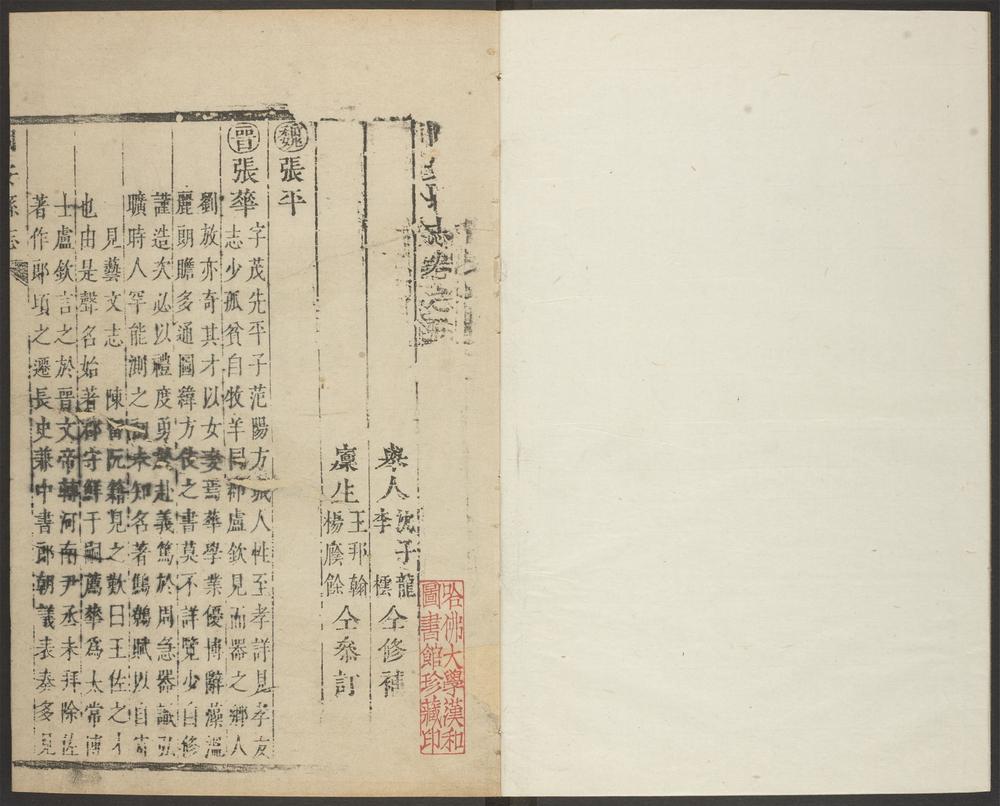 志卷之
舉人 沈子龍 李橒 仝修補
廩生 王邦翰 楊廕餘 仝叅訂
魏 張平
晉 張華 字茂先平子范陽方城人性至孝詳見孝友
志少孤貧自牧羊同郡盧欽見而器之鄉人
劉放亦奇其才以女妻焉華學業優博辭藻溫
麗朗贍多通圖緯方伎之書莫不詳覽少自修
謹造次必以禮度勇於赴義篤於周急器識弘
曠時人罕能測之初未知名著鷦鷯賦以自寄
見藝文志 陳留阮籍見之歎曰王佐之才
也由是聲名始著郡守鮮于嗣薦華爲太常博
士盧欽言之於晉文帝轉河南尹丞未拜除佐
著作郎頃之遷長史兼中書郎朝議表奏多見
縣志
哈佛大學漢和
圖書館珍藏印